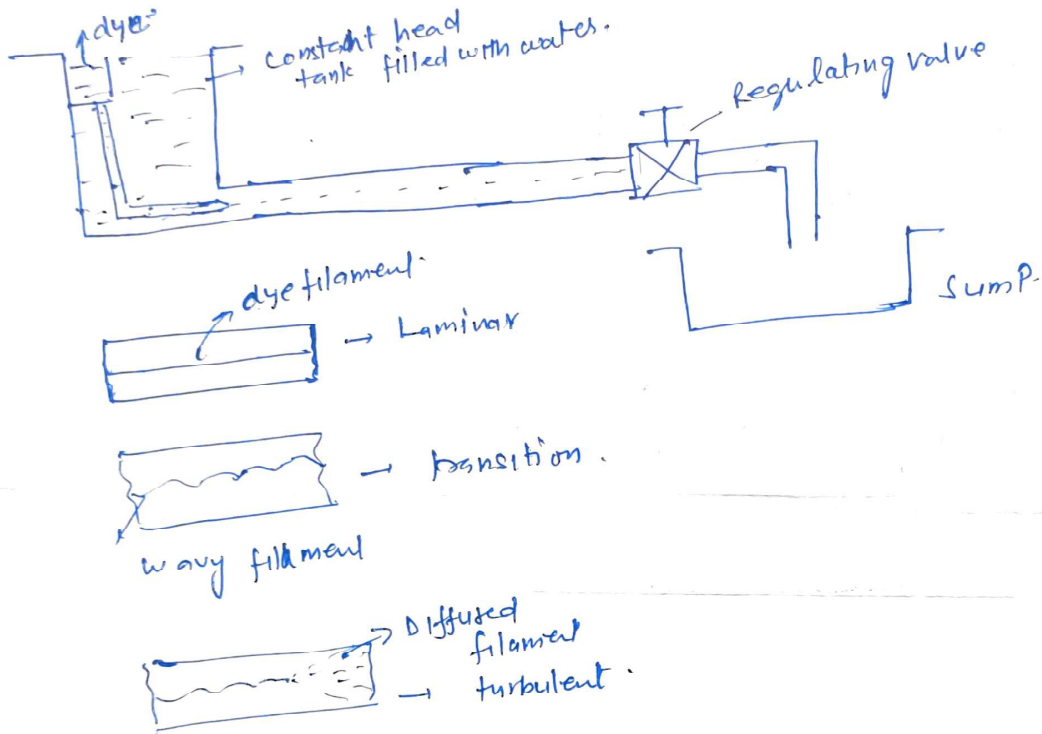 dye
constant head
tank filled with water.
Regulating valve
sump.
dye filament.
→ Laminar
→ transition.
wavy filament
Diffused
filament
→ turbulent.